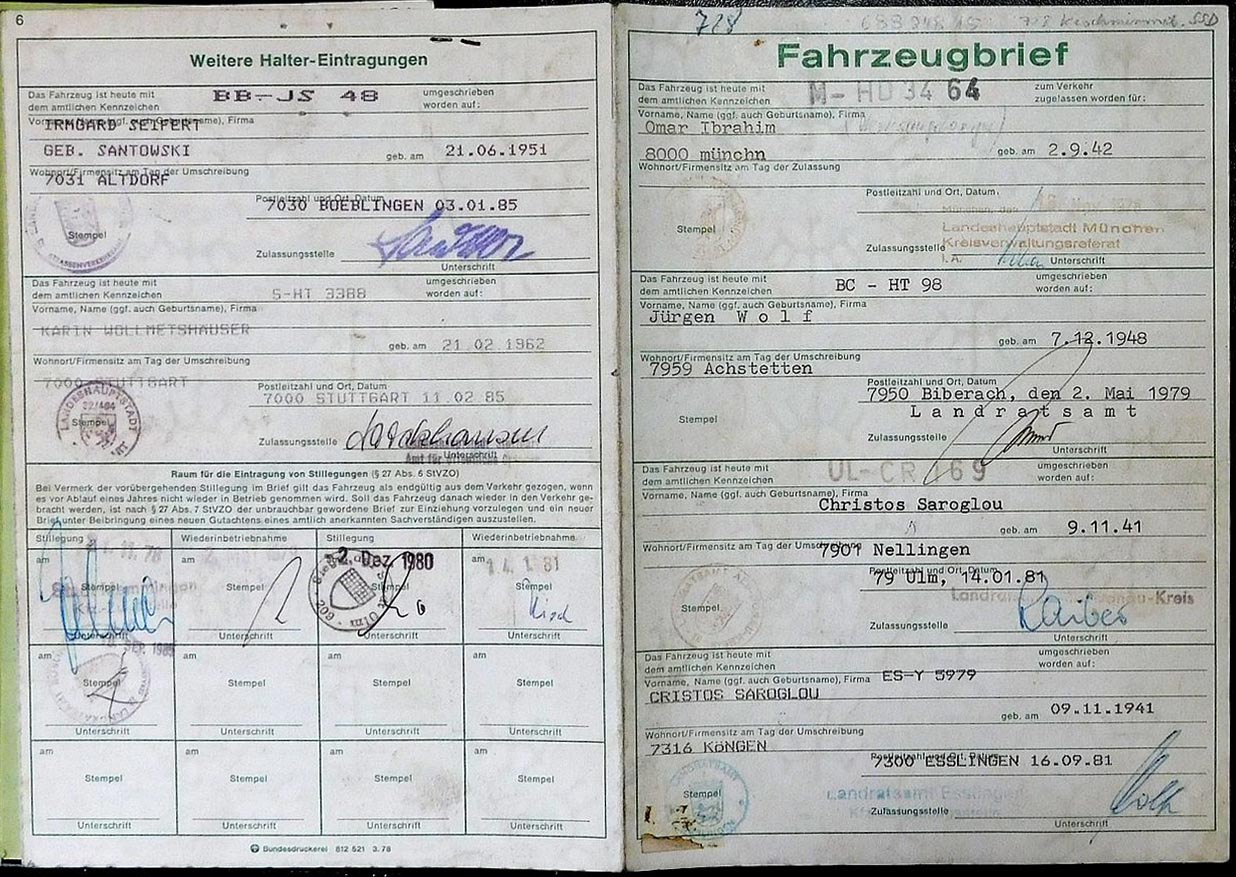 6
Weitere Halter-Eintragungen
Das Fahrzeug ist heute mit
dem amtlichen Kennzeichen
BB-JS 48
umgeschrieben
worden auf:
Vorname, Name (ggf. auch Geburtsname), Firma
IRMGARD SEIFERT
GEB. SANTOWSKI
geb. am 21.06.1951
Wohnort/Firmensitz am Tag der Umschreibung
7031 ALTDORF
Postleitzahl und Ort, Datum
7030 BOEBLINGEN 03.01.85
Stempel
Zulassungsstelle
Unterschrift
Das Fahrzeug ist heute mit
dem amtlichen Kennzeichen
S-HT 3388
umgeschrieben
worden auf:
Vorname, Name (ggf. auch Geburtsname), Firma
KARIN WOLLMETSHAUSER
geb. am 21 02 1962
Wohnort/Firmensitz am Tag der Umschreibung
7000 STUTTGART
Postleitzahl und Ort, Datum
7000 STUTTGART 11 02 85
LANDESHAUPTSTADT
Stempel
Zulassungsstelle
Unterschrift
Raum für die Eintragung von Stillegungen (§ 27 Abs. 6 StVZO)
Bei Vermerk der vorübergehenden Stillegung im Brief gilt das Fahrzeug als endgültig aus dem Verkehr gezogen, wenn
es vor Ablauf eines Jahres nicht wieder in Betrieb genommen wird. Soll das Fahrzeug danach wieder in den Verkehr ge-
bracht werden, ist nach § 27 Abs. 7 StVZO der unbrauchbar gewordene Brief zur Einziehung vorzulegen und ein neuer
Brief unter Beibringung eines neuen Gutachtens eines amtlich anerkannten Sachverständigen auszustellen.
Stillegung Wiederinbetriebnahme Stillegung Wiederinbetriebnahme
am am 2. Dez. 1980 am
14. 1. 81
Stempel Stempel Stempel Stempel
Unterschrift Unterschrift Unterschrift Unterschrift
am am am am
Stempel Stempel Stempel Stempel
Unterschrift Unterschrift Unterschrift Unterschrift
am am am am
Stempel Stempel Stempel Stempel
Unterschrift Unterschrift Unterschrift Unterschrift
Bundesdruckerei 812 521 3.78
728
Fahrzeugbrief
Das Fahrzeug ist heute mit
dem amtlichen Kennzeichen
M-HU 3464
zum Verkehr
zugelassen worden für:
Vorname, Name (ggf. auch Geburtsname), Firma
Omar Ibrahim
8000 münchn
geb. am 2.9.42
Wohnort/Firmensitz am Tag der Zulassung
Postleitzahl und Ort, Datum
München, den
Stempel
Landeshauptstadt München
Zulassungsstelle
Kreisverwaltungsreferat
I.A.
Unterschrift
Das Fahrzeug ist heute mit
dem amtlichen Kennzeichen
BC - HT 98
umgeschrieben
worden auf:
Vorname, Name (ggf. auch Geburtsname), Firma
Jürgen W o l f
geb. am 7.12.1948
Wohnort/Firmensitz am Tag der Umschreibung
7959 Achstetten
Postleitzahl und Ort, Datum
7950 Biberach, den 2. Mai 1979
L a n d r a t s a m t
Stempel
Zulassungsstelle
Unterschrift
Das Fahrzeug ist heute mit
dem amtlichen Kennzeichen
UL-CR 169
umgeschrieben
worden auf:
Vorname, Name (ggf. auch Geburtsname), Firma
Christos Saroglou
geb. am 9.11.41
Wohnort/Firmensitz am Tag der Umschreibung
7901 Nellingen
Postleitzahl und Ort, Datum
79 Ulm, 14.01.81
Stempel
Zulassungsstelle
Unterschrift
Das Fahrzeug ist heute mit
dem amtlichen Kennzeichen
umgeschrieben
worden auf:
Vorname, Name (ggf. auch Geburtsname), Firma
ES-Y 5979
CRISTOS SAROGLOU
geb. am 09.11.1941
Wohnort/Firmensitz am Tag der Umschreibung
7316 KöNGEN
Postleitzahl und Ort, Datum
7300 ESSLINGEN 16.09.81
Stempel
Landratsamt Esslingen
Zulassungsstelle
Unterschrift